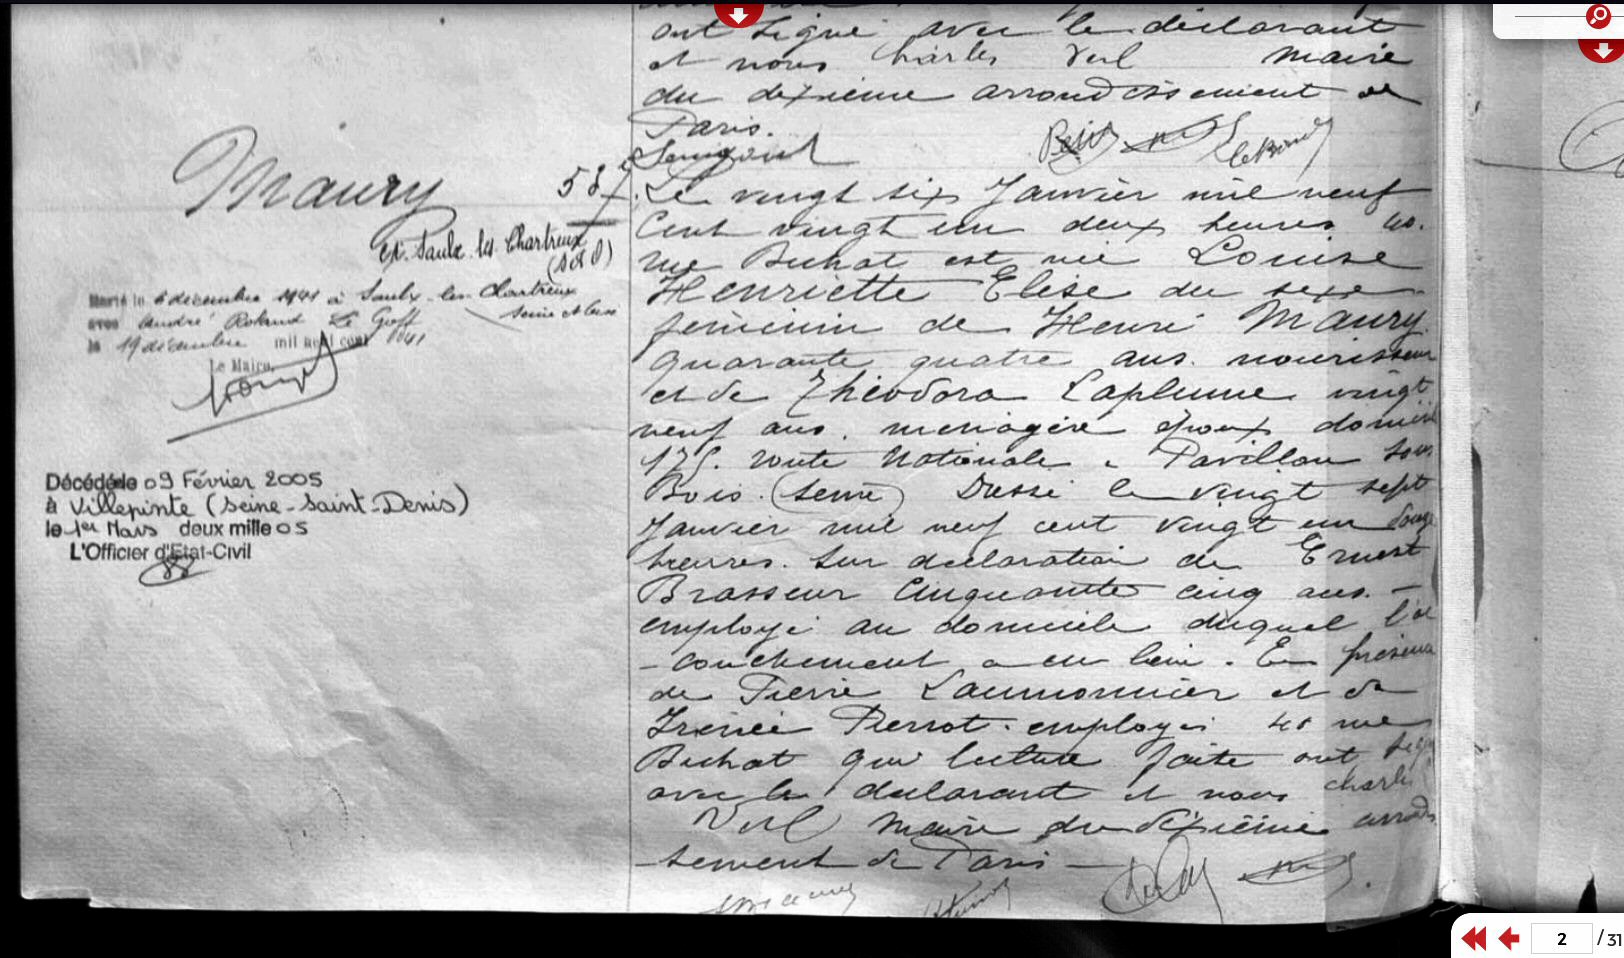 ont signé avec le déclarant
et nous Charles Verl Maire
du dixième arrondissement de
Paris.
Maury
587
ex. Saulx-les-Chartreux
(S et O)
Marié le 6 décembre 1941 à Saulx-les-Chartreux
Seine et Oise
avec André Roland Le Goff
le 19 décembre mil neuf cent 1941
Le Maire,
Décédée le 09 Février 2005
à Villepinte (Seine-Saint-Denis)
le 1er Mars deux mille 05
L'Officier d'Etat-Civil
Le vingt six Janvier mil neuf
Cent vingt un deux heures 40.
rue Bichat est née Louise
Henriette Elise du sexe
féminin de Henri Maury
quarante quatre ans. nourisseur
et de Théodora Laplume vingt
neuf ans. ménagère époux domicil
175. route Nationale a Pavillon sous
Bois. (Seine) Dressé le vingt sept
Janvier mil neuf cent vingt un douze
heures. Sur déclaration de Ernest
Brasseur Cinquante cinq ans. -
employé au domicile duquel l'ac
- couchement a eu lieu. En présence
de Pierre Laumonnier et de
Irénée Pierrot. employés 40 rue
Bichat qui lecture faite ont signé
avec le déclarant et nous Charles
Verl Maire du dixième arrondis
- sement de Paris -
2 / 31